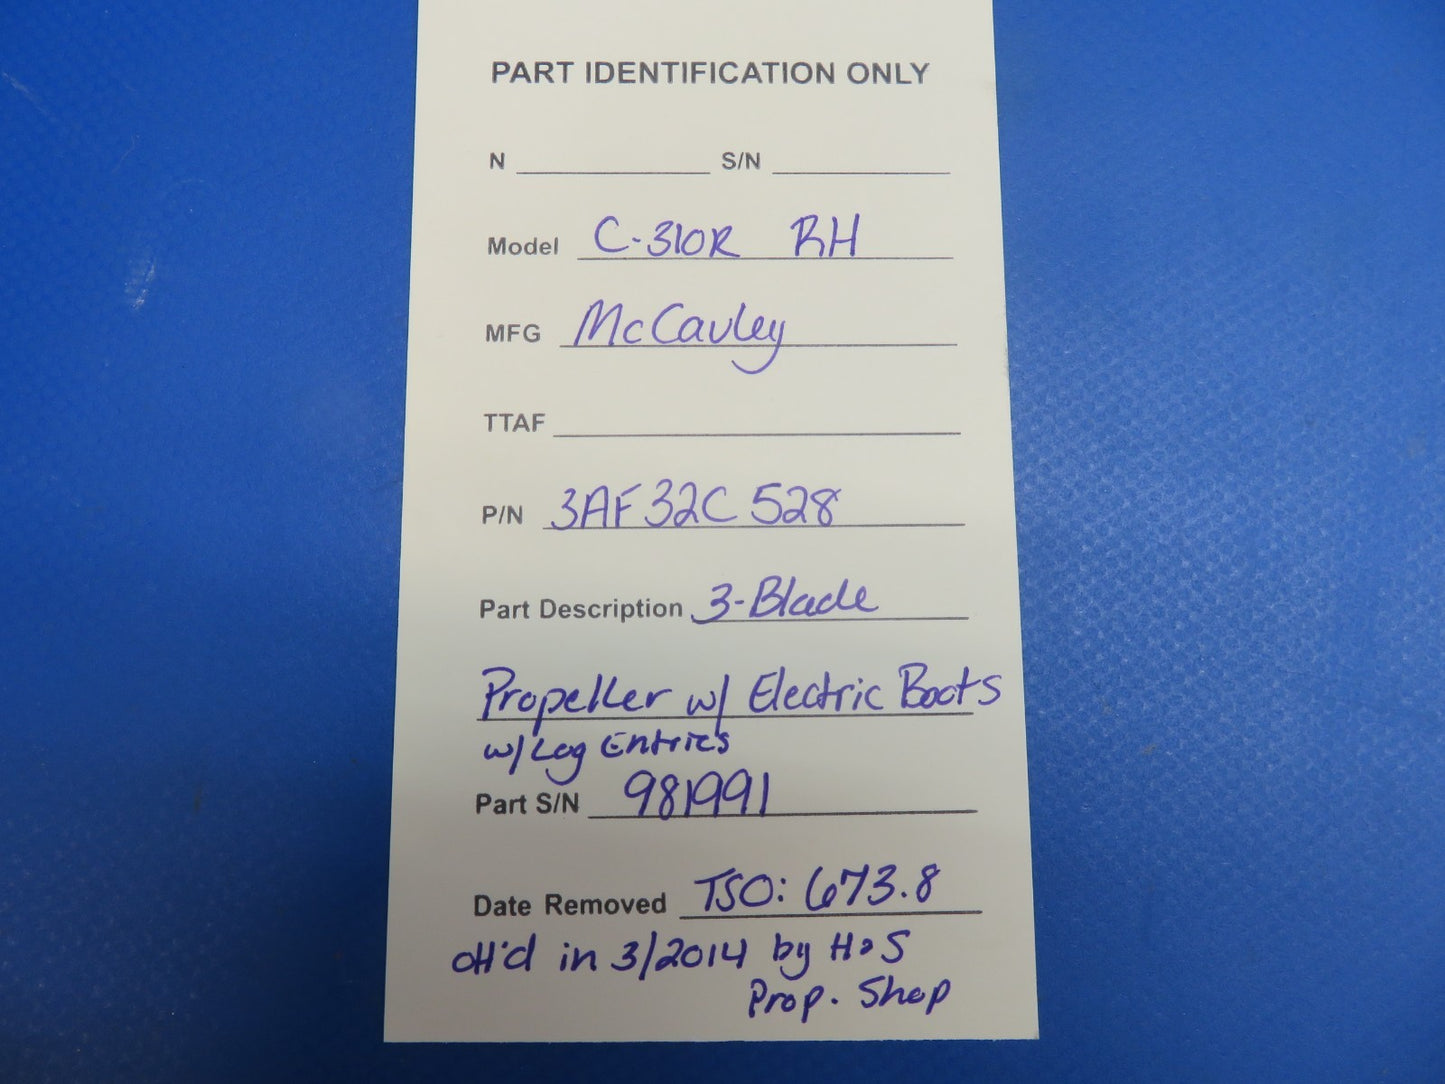 PART IDENTIFICATION ONLY
N S/N
Model C-310R RH
MFG McCauley
TTAF
P/N 3AF32C528
Part Description 3-Blade
Propeller w/ Electric Boots
w/Log Entries
Part S/N 981991
Date Removed TSO: 673.8
OH'd in 3/2014 by H&S
Prop. Shop